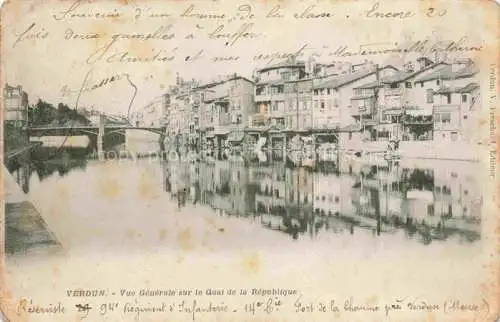 Souvenir d'un homme de la classe. Encore 20
fois deux gamelles à
Amitiés et mes respects à Mademoiselle
VERDUN. - Vue Générale sur le Quai de la République
Réserviste 94e Régiment d'Infanterie - 14e Cie Fort de la Chaume près Verdun (Meuse)